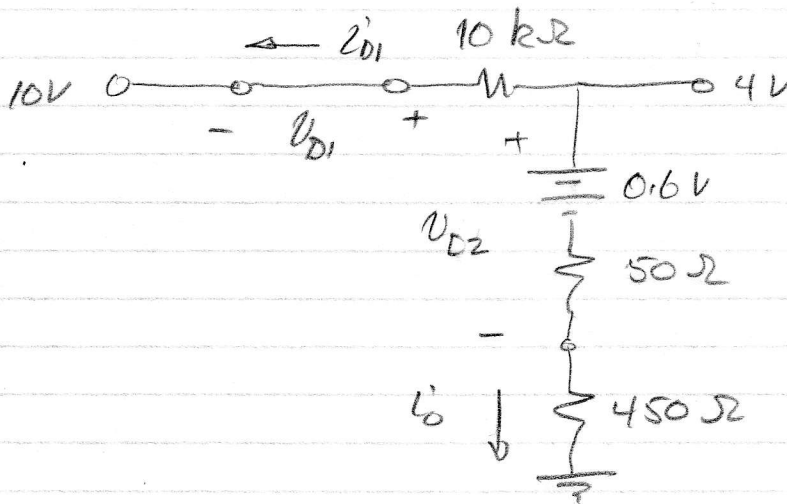 ← i_D1 10 kΩ
10V 4V
- v_D1 + +
0.6V
v_D2
50Ω
-
i_o ↓ 450Ω